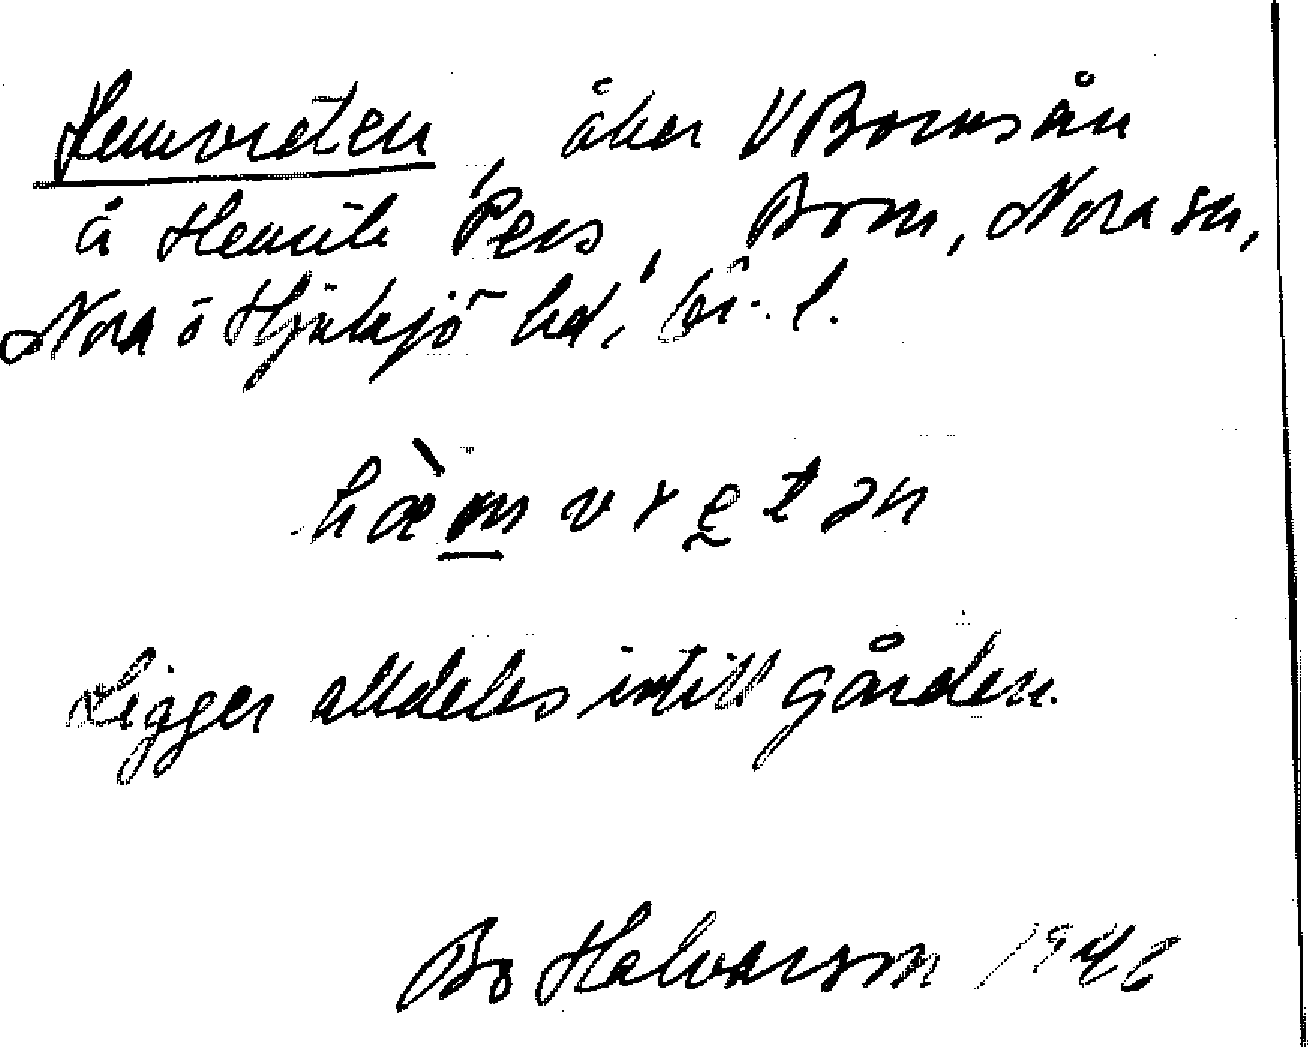 Hemvreten, åker V Bornsån
å Henrik Pers, Born, Nora sn,
Nora o Hjulsjö hd, Ör. l.
hæ̀mvretən
Ligger alldeles intill gården.
Bo Halvarson 1946